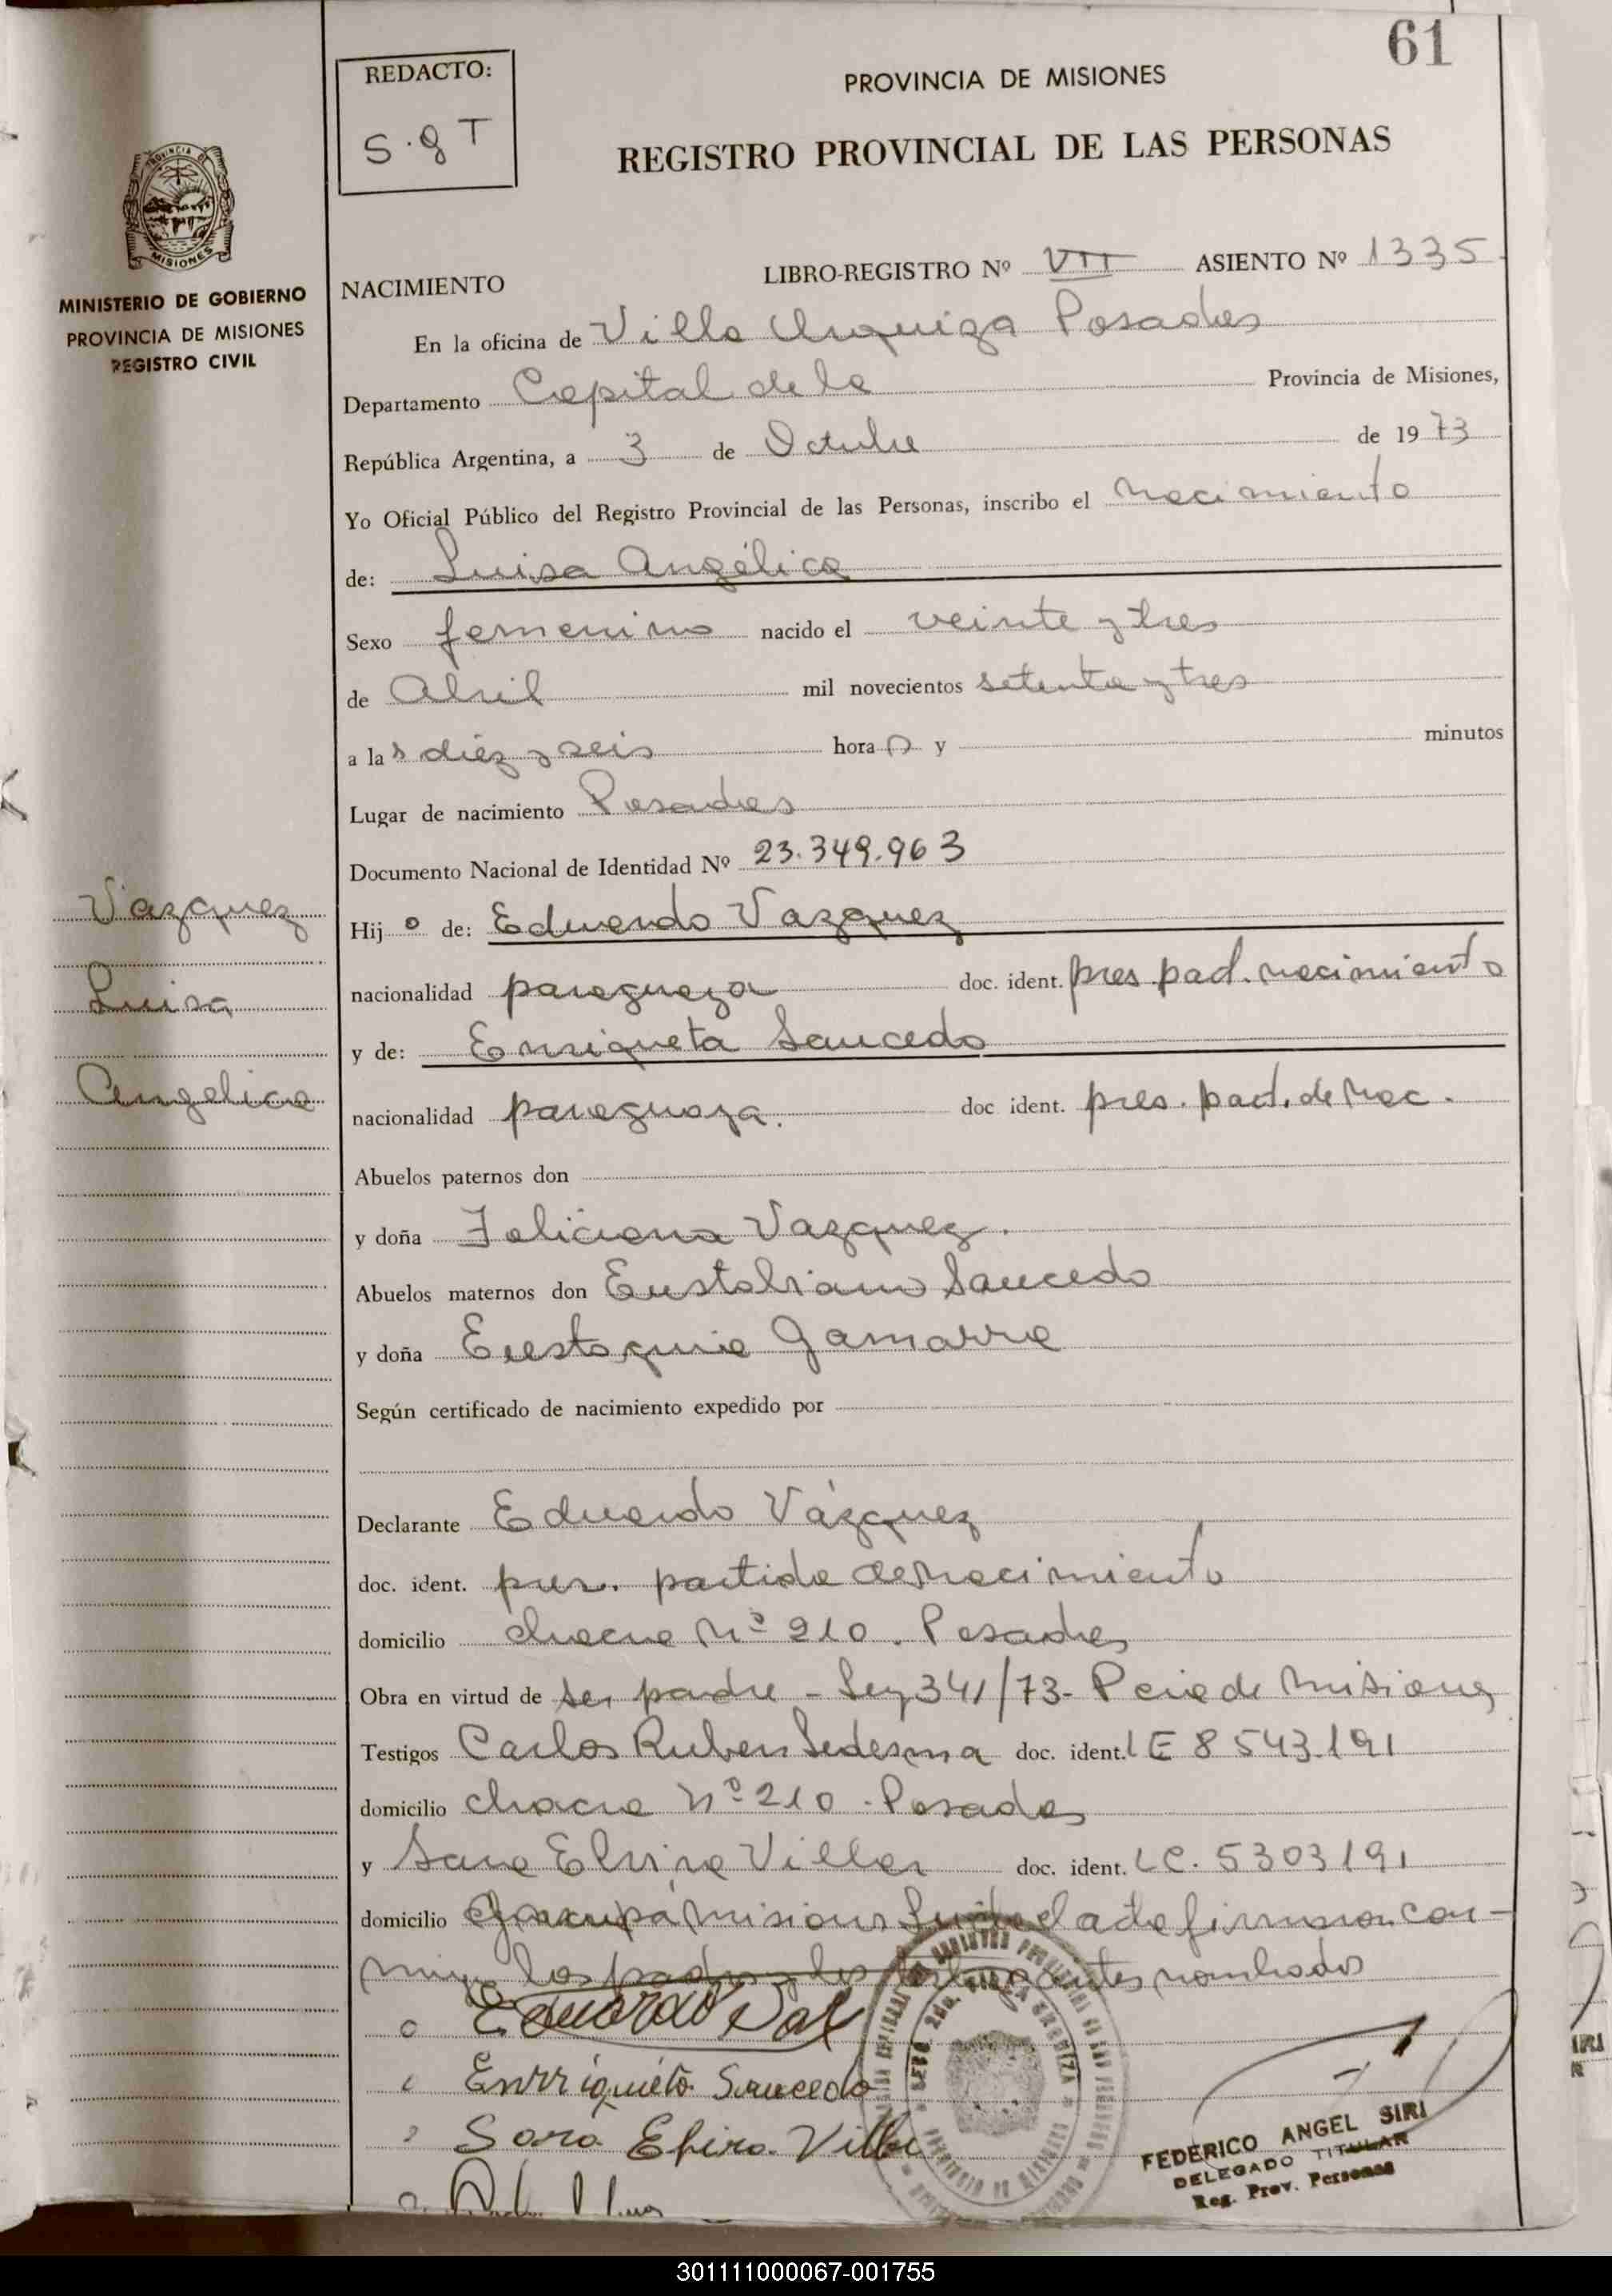 61
REDACTO:
S. g T
PROVINCIA DE MISIONES
REGISTRO PROVINCIAL DE LAS PERSONAS
MINISTERIO DE GOBIERNO
PROVINCIA DE MISIONES
REGISTRO CIVIL
NACIMIENTO LIBRO-REGISTRO Nº VII ASIENTO Nº 1335
En la oficina de Villa Urquiza Posadas
Departamento Capital de la Provincia de Misiones,
República Argentina, a 3 de Octubre de 1973
Yo Oficial Público del Registro Provincial de las Personas, inscribo el Nacimiento
de: Luisa Angélica
Sexo femenino nacido el veinte y tres
de Abril mil novecientos setenta y tres
a las diez y seis horas y minutos
Lugar de nacimiento Posadas
Documento Nacional de Identidad Nº 23.349.963
Vazquez
Luisa
Angelica
Hijo de: Eduardo Vazquez
nacionalidad paraguaya doc. ident. pres. part. nacimiento
y de: Enriqueta Saucedo
nacionalidad paraguaya. doc ident. pres. part. de Nac.
Abuelos paternos don
y doña Feliciana Vazquez.
Abuelos maternos don Saucedo
y doña Eustaquia Gamarra
Según certificado de nacimiento expedido por
Declarante Eduardo Vázquez
doc. ident. pres. partida de nacimiento
domicilio chacra Nº 210. Posadas
Obra en virtud de ser padre - Ley 341/73- Pcia de Misiones
Testigos Carlos Ruben Ledesma doc. ident. LE 8543191
domicilio chacra Nº 210 - Posadas
y Sara Elvira Villar doc. ident. LC. 5303191
domicilio Garupá Misiones Leída el acta firmaron con-
migo los padres y los testigos antes nombrados
Eduardo
Enrriquieta Saucedo
Sara Elvira Villar
FEDERICO ANGEL SIRI
DELEGADO TITULAR
Reg. Prov. Personas
301111000067-001755